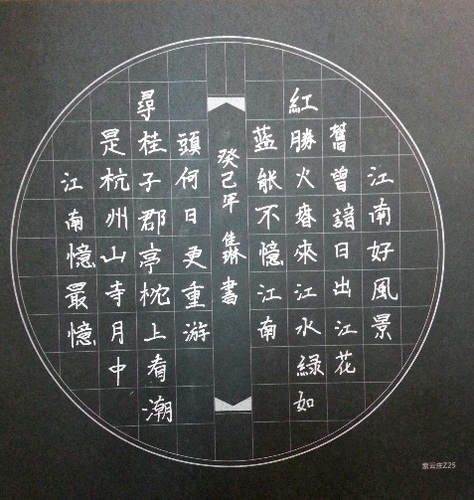 江南好風景
舊曾諳日出江花
紅勝火春來江水綠如
蓝能不憶江南
江南憶最憶
是杭州山寺月中
尋桂子郡亭枕上看潮
頭何日更重游
癸己年 佳琳 書
紫云庄Z25